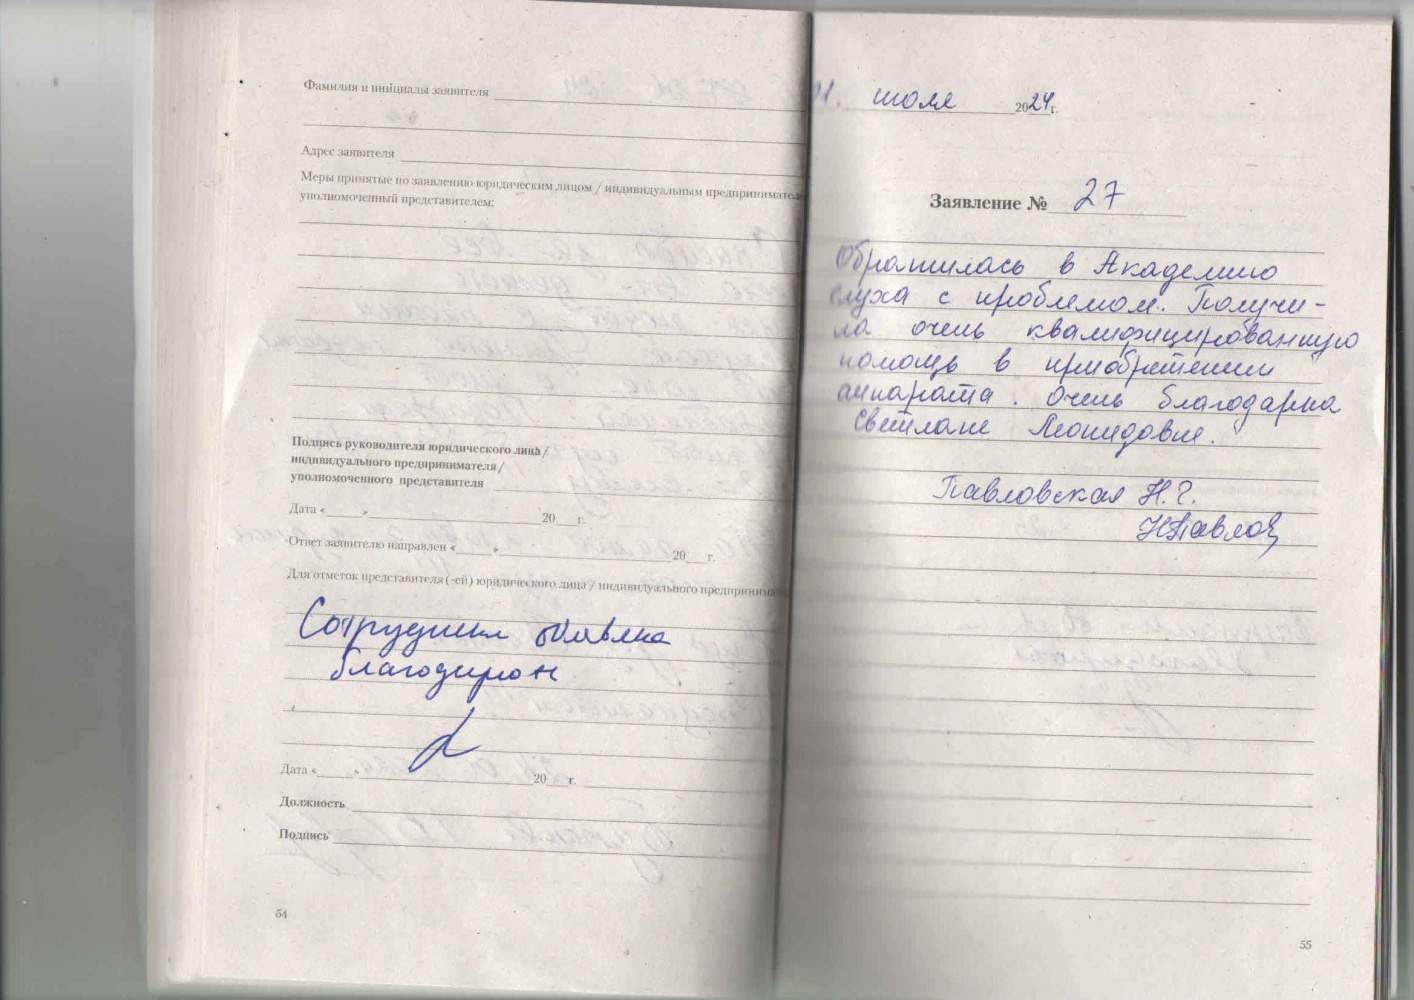 Фамилия и инициалы заявителя
Адрес заявителя
Меры принятые по заявлению юридическим лицом / индивидуальным предпринимател
уполномоченный представителем:
Подпись руководителя юридического лица /
индивидуального предпринимателя /
уполномоченного представителя
Дата « » 20 г.
Ответ заявителю направлен « » 20 г.
Для отметок представителя (-ей) юридического лица / индивидуального предпринима
Сотруднику объявлена
благодарон
Дата « » 20 г.
Должность
Подпись
54
01. июля 2024г.
Заявление № 27
Обратилась в Академию
слуха с проблемой. Получи-
ла очень квалифицированную
помощь в приобретении
аппарата. Очень благодарна
Светлане Леонидовне.
Павловская Н.Г.
НПавлов
55